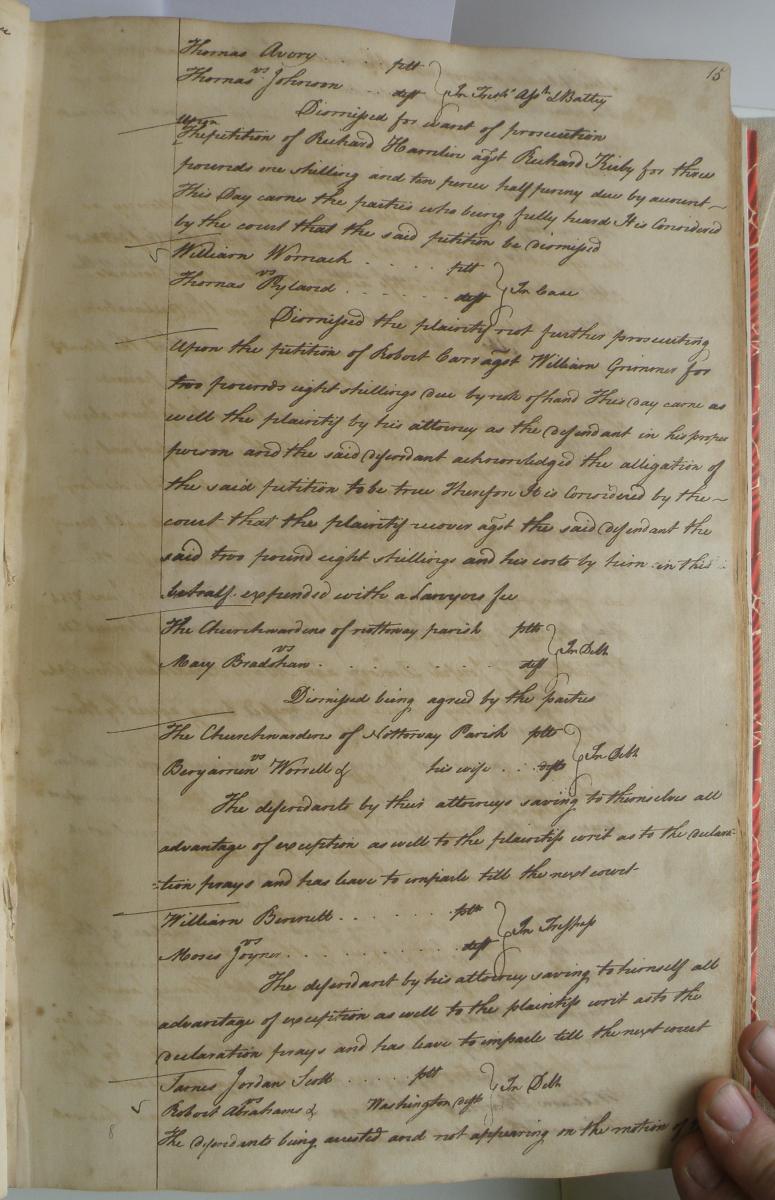 15
Thomas Avory . . . . . pltt
vs
Thomas Johnson . . . deft } In Tresps Asslt & Battry
Dismissed for want of prosecution
Upon
The petition of Richard Hamlin agst Richard Kirby for three
pounds one shilling and ten pence half penny due by account ~
This Day came the parties who being fully heard It is Considered
by the court that the said petition be dismissed
William Womack . . . . . pltt
vs
Thomas Bylared . . . . . deft } In Case
Dismissed the plaintif not further prosecuting
Upon the petition of Robert Carr agst William Grimmer for
two pounds eight shillings due by note of hand This day came as
well the plaintif by his attorney as the defendant in his proper
person and the said defendant acknowledged the alligation of
the said petition to be true Therefore It is Considered by the ~
court that the plaintif recover agst the said defendant the
said two pound eight shillings and his costs by him in this
behalf expended with a Lawyers fee
The Churchwardens of nottoway parish pltts
vs
Mary Bradshaw . . . . . deft } In Debt
Dismissed being agreed by the parties
The Churchwardens of Nottoway Parish pltts
vs
Benjamin Worrell & his wife . . defts } In Debt
The defendants by their attorneys saving to themselves all
advantage of exception as well to the plaintifs writ as to the declara-
-tion prays and has leave to imparle till the next court
William Bennett . . . . . pltt
vs
Moses Joyner . . . . . . . deft } In Tresspass
The defendant by his attorney saving to himself all
advantage of exception as well to the plaintifs writ as to the
declaration prays and has leave to imparle till the next court
James Jordan Scott . . . . . pltt
vs
Robert Abrahams & Washington defts } In Debt
8
The defendants being arrested and not appearing on the motion of